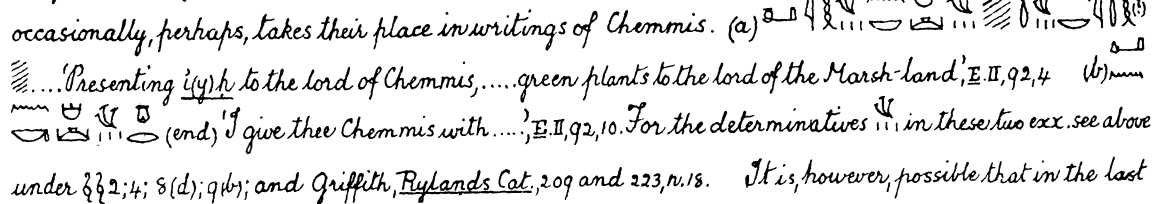 occasionally, perhaps, takes their place in writings of Chemmis. (a)
.... 'Presenting i(y)ḥ to the lord of Chemmis, ..... green plants to the lord of the Marsh-land', E.II,92,4 (b)
(end) 'I give thee Chemmis with ....', E.II,92,10. For the determinatives in these two exx. see above
under §§2;4; 8(d); 9(b); and Griffith, Rylands Cat., 209 and 223, n.18. It is, however, possible that in the last